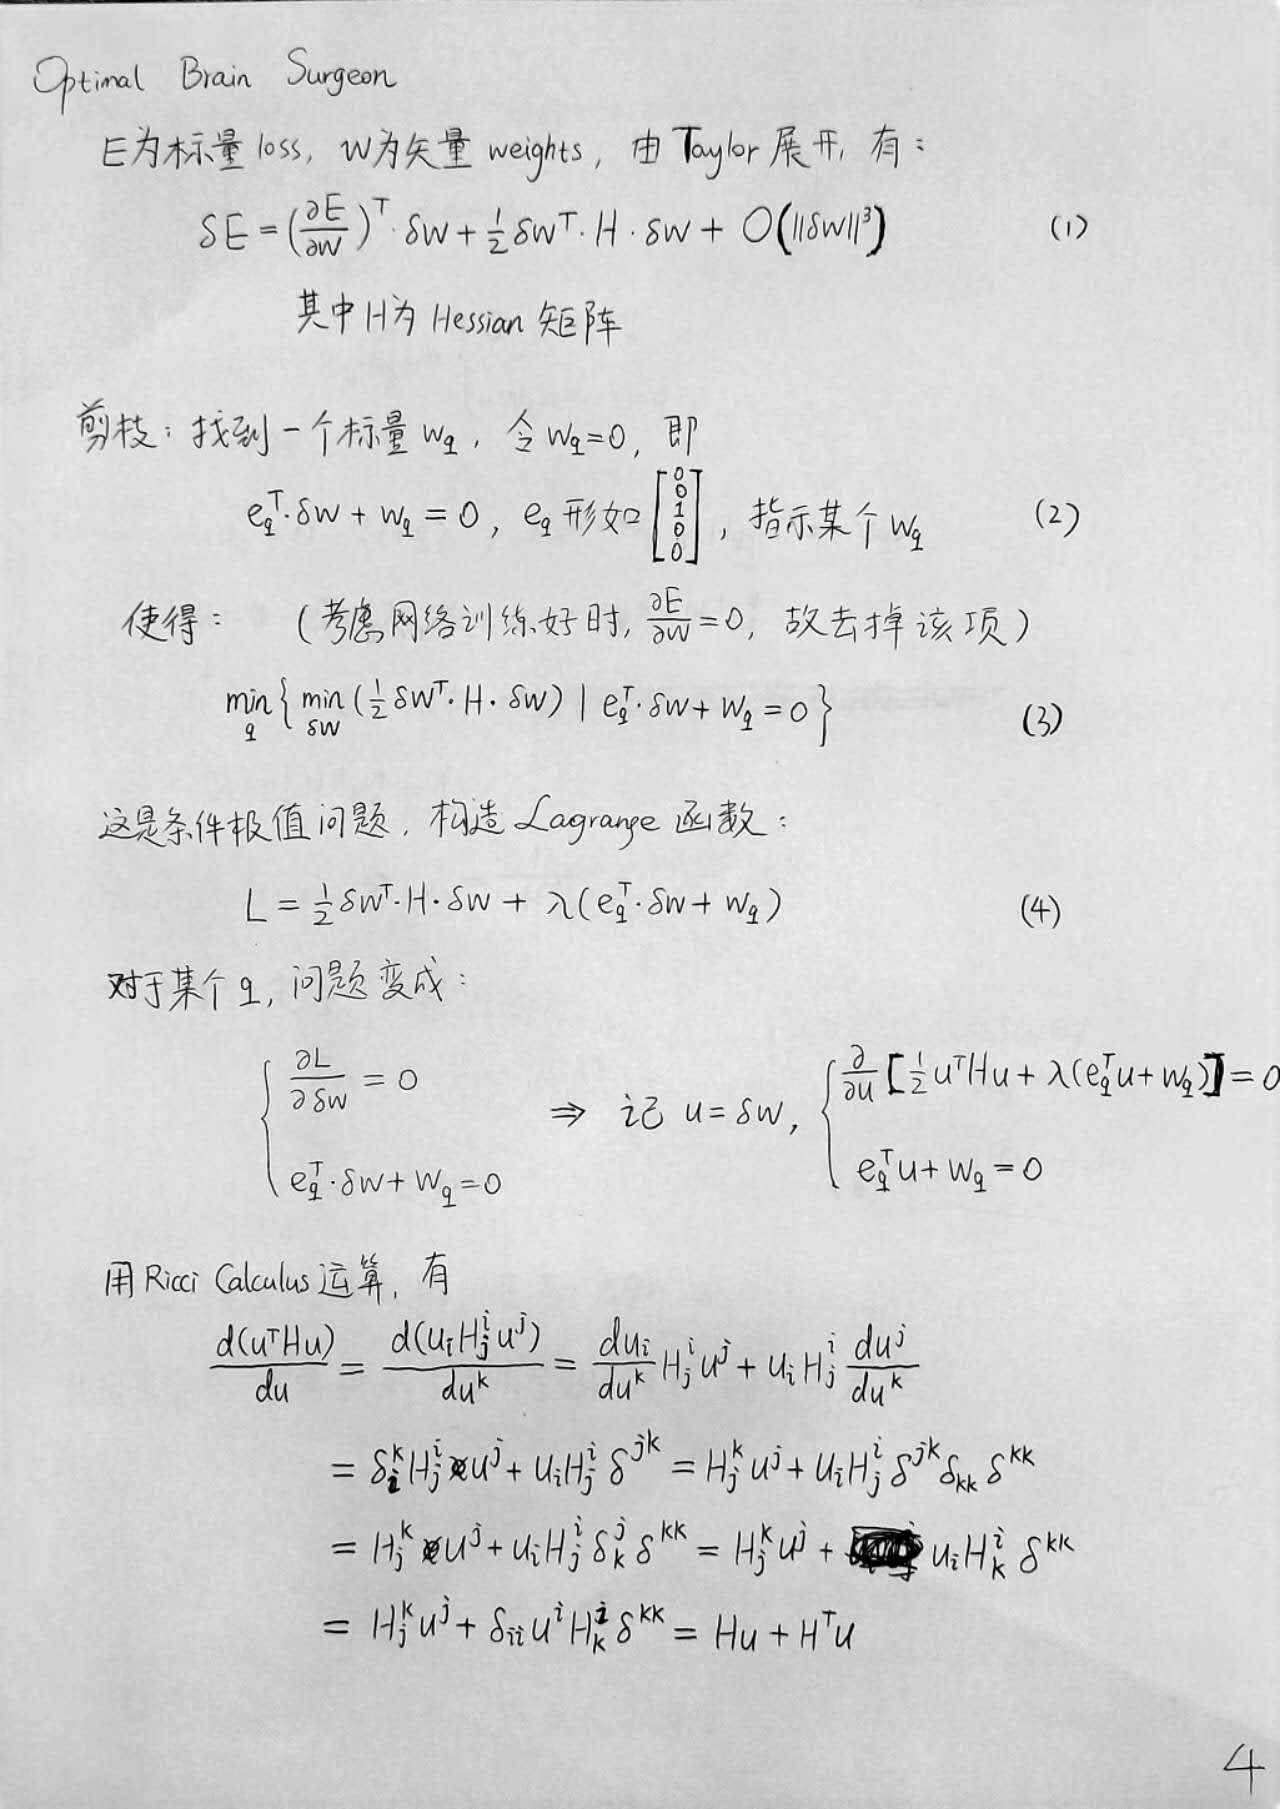 Optimal Brain Surgeon
E为标量 loss, W为矢量 weights, 由 Taylor 展开, 有:
δE = (∂E/∂W)ᵀ · δW + ½ δWᵀ · H · δW + O(‖δW‖³) (1)
其中 H为 Hessian 矩阵
剪枝: 找到一个标量 w_q, 令 w_q=0, 即
e_qᵀ·δw + w_q = 0, e_q 形如 [0 0 1 0 0], 指示某个 w_q (2)
使得: (考虑网络训练好时, ∂E/∂W=0, 故去掉该项)
min_q { min_δw (½ δWᵀ · H · δW) | e_qᵀ · δw + w_q = 0 } (3)
这是条件极值问题, 构造 Lagrange 函数:
L = ½ δWᵀ·H·δW + λ(e_qᵀ·δw + w_q) (4)
对于某个 q, 问题变成:
{ ∂L/∂δw = 0 ; e_qᵀ·δw + w_q = 0 ⇒ 记 u = δw, { ∂/∂u [½ uᵀHu + λ(e_qᵀu + w_q)] = 0 ; e_qᵀu + w_q = 0
用 Ricci Calculus 运算, 有
d(uᵀHu)/du = d(u_i H^i_j u^j)/du^k = du_i/du^k H^i_j u^j + u_i H^i_j du^j/du^k
= δ^k_i H^i_j u^j + u_i H^i_j δ^{jk} = H^k_j u^j + u_i H^i_j δ^{jk} δ_{kk} δ^{kk}
= H^k_j u^j + u_i H^i_j δ^j_k δ^{kk} = H^k_j u^j + u_i H^i_k δ^{kk}
= H^k_j u^j + δ_{ii} u^i H^i_k δ^{kk} = Hu + Hᵀu
4